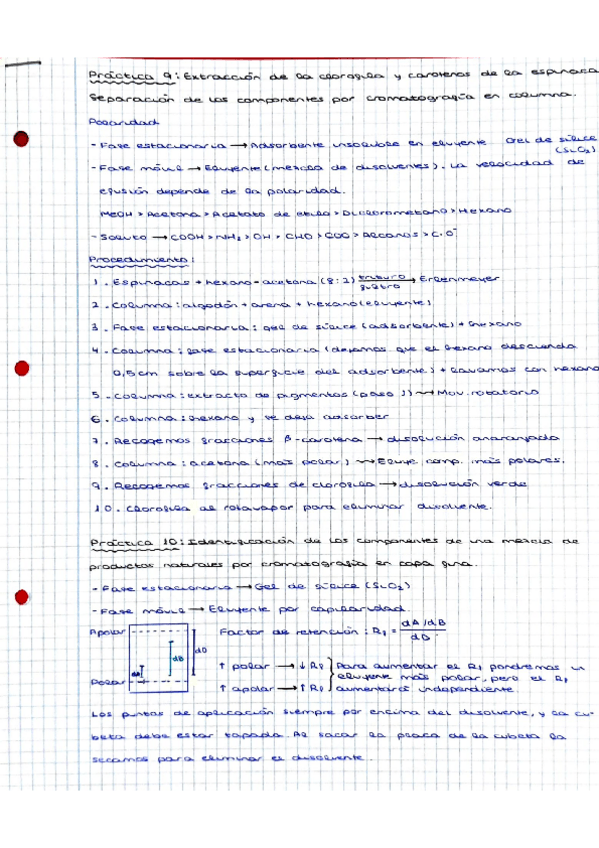 Práctica 9: Extracción de la clorofila y carotenos de la espinaca
Separación de los componentes por cromatografía en columna.
Polaridad
- Fase estacionaria → Adsorbente insoluble en eluyente Gel de sílice
(SiO2)
- Fase móvil → Eluyente (mezcla de disolventes). La velocidad de
efusión depende de la polaridad.
MeOH > Acetona > Acetato de etilo > Diclorometano > Hexano
- Soluto → COOH > NH2 > OH > CHO > COO > Alcanos >
Procedimiento:
1. Espinacas + hexano-acetona (8:2) trituro → Erlenmeyer
filtro
2. Columna: algodón + arena + hexano (eluyente)
3. Fase estacionaria: gel de sílice (adsorbente) + hexano
4. Columna: fase estacionaria (dejamos que el hexano descienda
0,5cm sobre la superficie del adsorbente) + lavamos con hexano
5. Columna: extracto de pigmentos (paso 1) ⇝ Mov. rotatorio
6. Columna: hexano y se deja adsorber
7. Recogemos fracciones β-carotena → disolución anaranjada
8. Columna: acetona (más polar) ⇝ Eluye comp. más polares.
9. Recogemos fracciones de clorofila → disolución verde
10. Clorofila al rotavapor para eliminar disolvente.
Práctica 10: Identificación de los componentes de una mezcla de
productos naturales por cromatografía en capa fina.
- Fase estacionaria → Gel de sílice (SiO2)
- Fase móvil → Eluyente por capilaridad.
Apolar Factor de retención: Rf = dA/dB
dD
dA dB dD
↑ polar → ↓ Rf } Para aumentar el Rf pondremos un
eluyente más polar, pero el Rf
Polar ↑ apolar → ↑ Rf } aumentará independiente.
Los puntos de aplicación siempre por encima del disolvente, y la cu-
beta debe estar tapada. Al sacar la placa de la cubeta la
secamos para eliminar el disolvente.